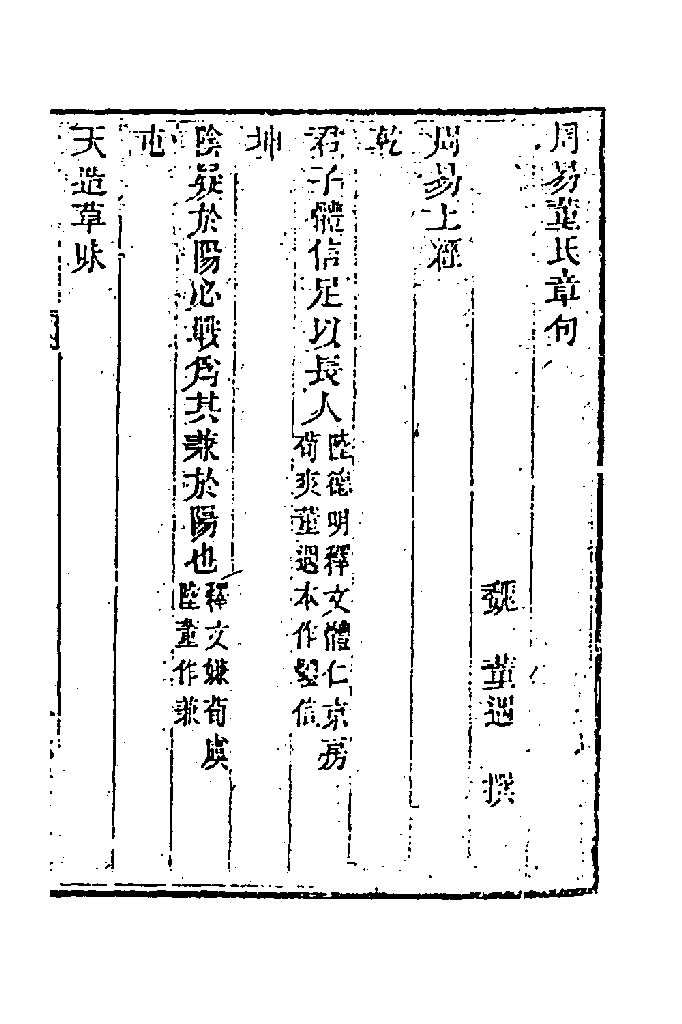 周易董氏章句
魏 董遇 撰
周易上經
乾
君子體信足以長人陸德明釋文體仁京房荀爽董遇本作體信
坤
陰疑於陽必戰爲其兼於陽也釋文嫌荀虞陸董作兼
屯
天造草昧